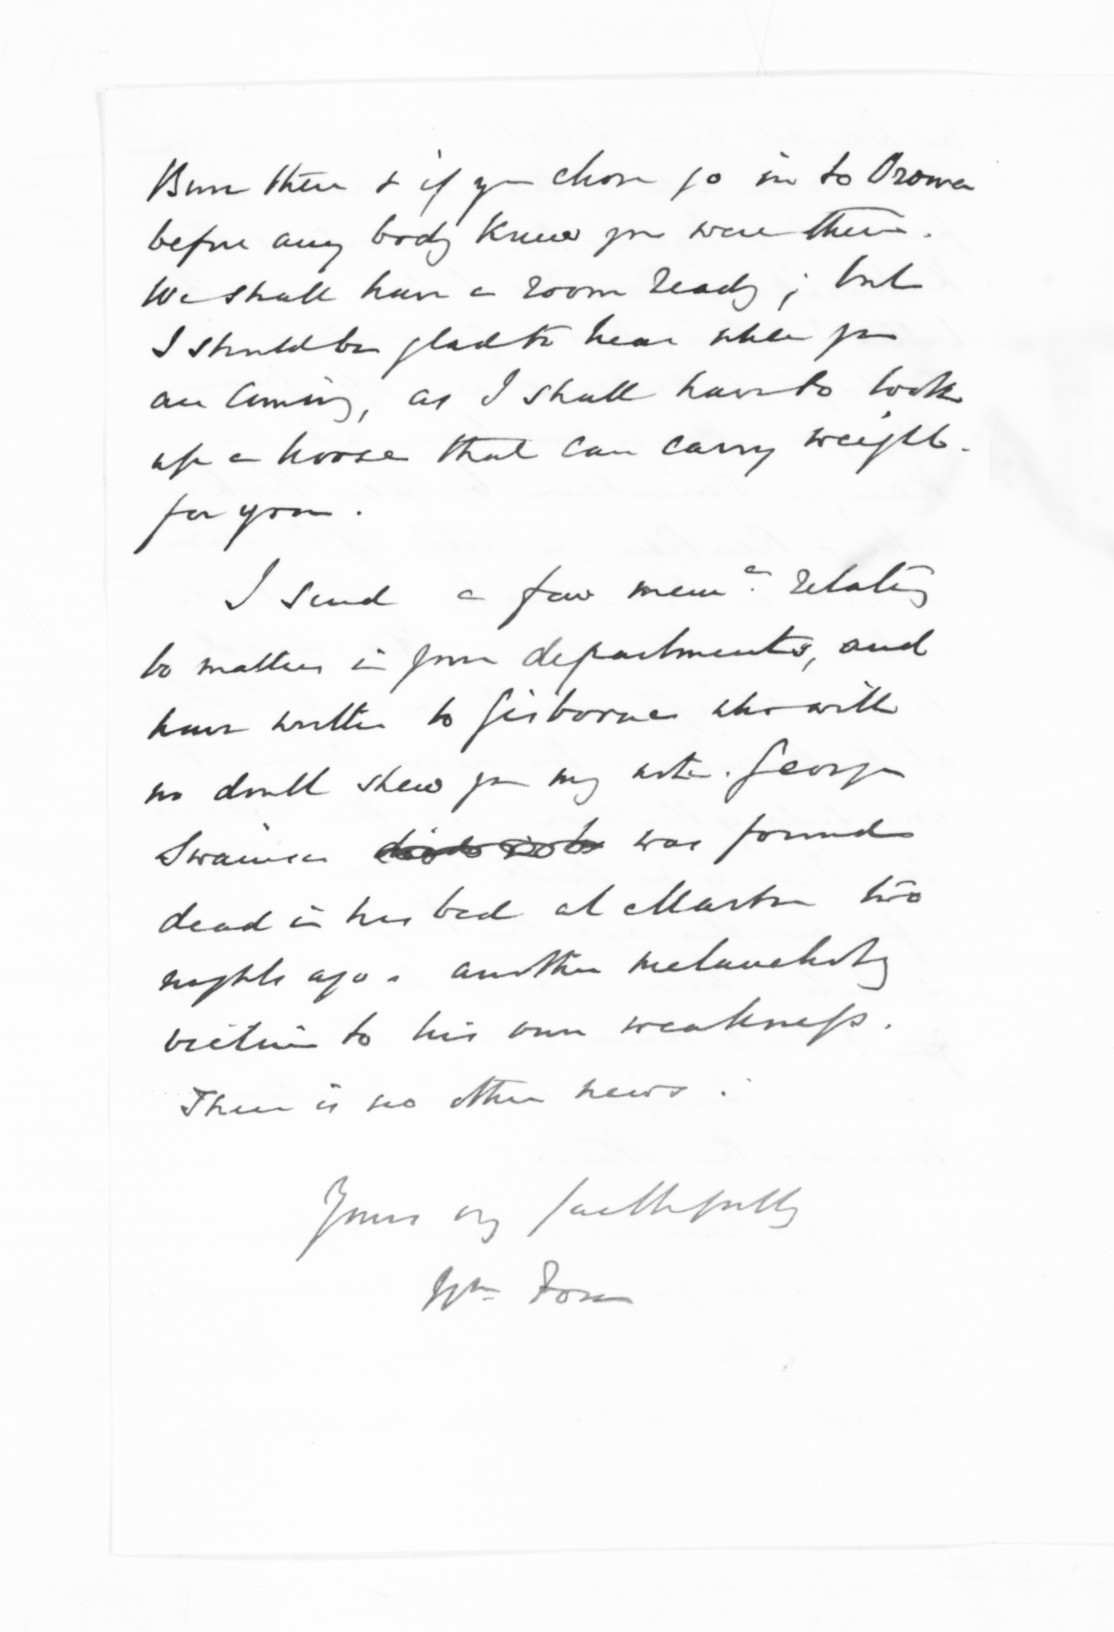 Bluff there & if you chose go in to Oroua
before any body knew you were there.
We shall have a room ready; but
I should be glad to hear when you
are coming, as I shall have to look
up a horse that can carry weight
for you.
I send a few mem.a relating
to matters in your departments, and
have written to Gisborne who will
no doubt shew you my note. George
Swainson was found
dead in his bed at Marton two
nights ago. another melancholy
victim to his own weakness.
There is no other news.
Yours vy faithfully
Wm Fox